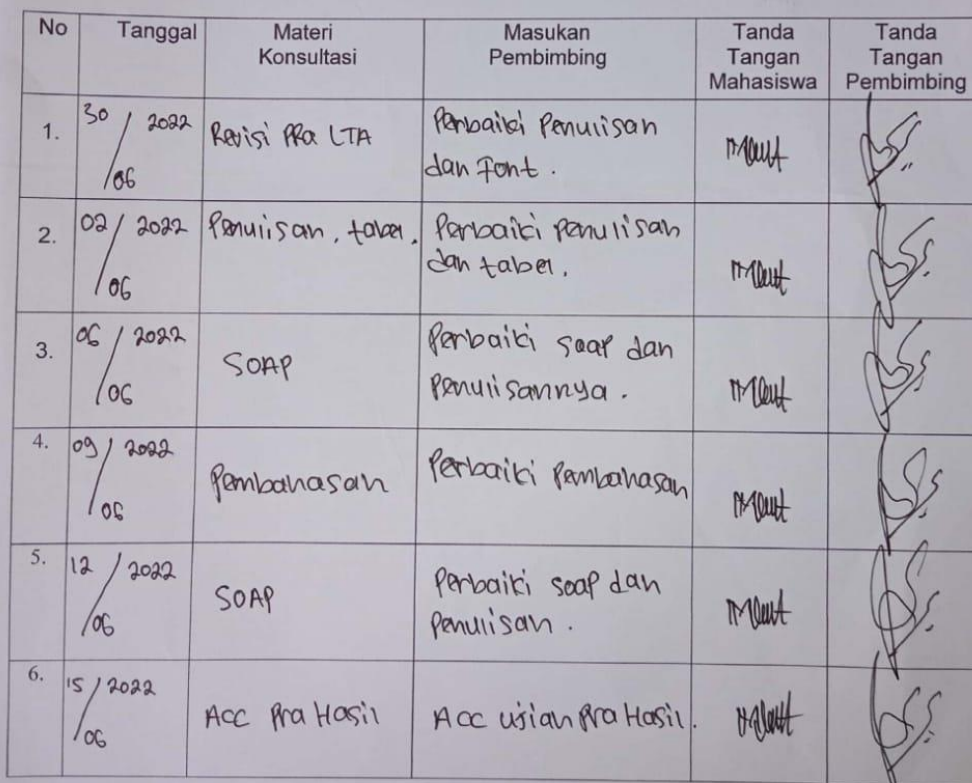 No Tanggal Materi Konsultasi Masukan Pembimbing Tanda Tangan Mahasiswa Tanda Tangan Pembimbing
1. 30/06 2022 Revisi PRa LTA Perbaiki Penulisan
dan Font.
2. 02/06 2022 Penulisan, tabel. Perbaiki penulisan
dan tabel.
3. 06/06 2022 SOAP Perbaiki soap dan
Penulisannya.
4. 09/06 2022 Pembahasan Perbaiki Pembahasan
5. 12/06 2022 SOAP Perbaiki soap dan
Penulisan.
6. 15/06 2022 Acc Pra Hasil Acc ujian Pra Hasil.